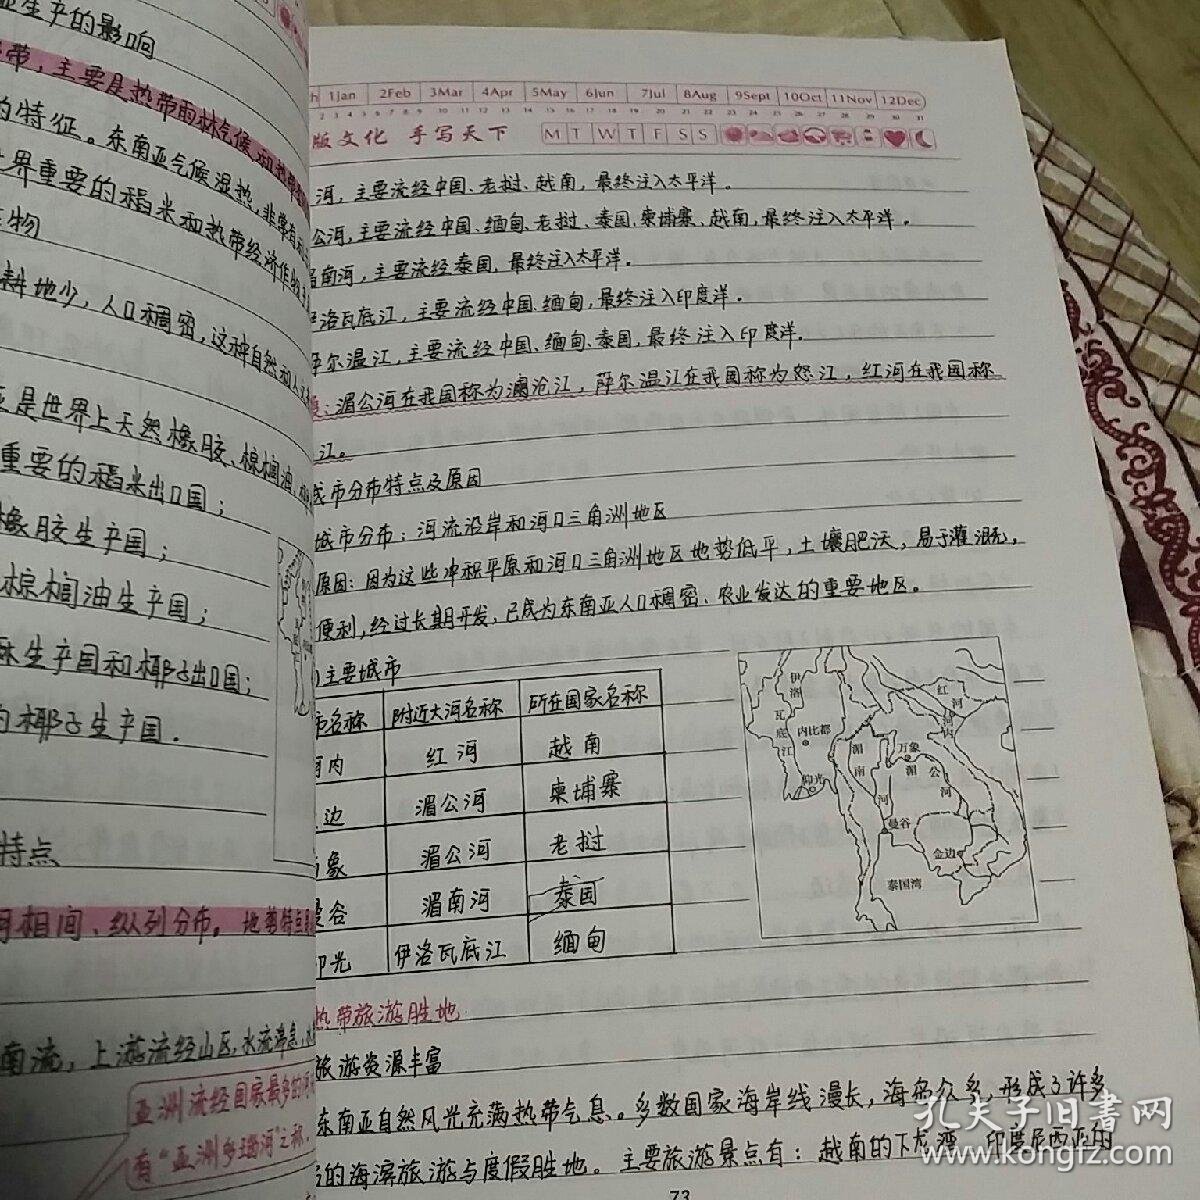 亚生产的影响
带,主要是热带雨林气候和热带
的特征。东南亚气候湿热,非常
世界重要的稻米和热带经济作物
物
耕地少,人口稠密,这种自然和人
亚是世界上天然橡胶、棕榈油、
重要的稻米出口国;
橡胶生产国;
棕榈油生产国;
麻生产国和椰子出口国;
的椰子生产国.
特点
相间、纵列分布。地势特点
南流,上游流经山区,水流湍急,
亚洲流经国家最多的河
有“亚洲多瑙河”之称.
1Jan 2Feb 3Mar 4Apr 5May 6Jun 7Jul 8Aug 9Sept 10Oct 11Nov 12Dec
版文化 手写天下 M T W T F S S
河,主要流经中国、老挝、越南,最终注入太平洋.
公河,主要流经中国、缅甸、老挝、泰国、柬埔寨、越南,最终注入太平洋.
南河,主要流经泰国,最终注入太平洋.
伊洛瓦底江,主要流经中国、缅甸,最终注入印度洋.
萨尔温江,主要流经中国、缅甸、泰国,最终注入印度洋.
:湄公河在我国称为澜沧江,萨尔温江在我国称为怒江,红河在我国称
江。
城市分布特点及原因
城市分布:河流沿岸和河口三角洲地区
原因:因为这些冲积平原和河口三角洲地区地势低平,土壤肥沃,易于灌溉,
便利,经过长期开发,已成为东南亚人口稠密、农业发达的重要地区.
主要城市
市名称 附近大河名称 所在国家名称
河内 红河 越南
边 湄公河 柬埔寨
象 湄公河 老挝
曼谷 湄南河 泰国
仰光 伊洛瓦底江 缅甸
伊洛瓦底江
内比都
仰光
红河
河内
万象
湄公河
湄南河
曼谷
金边
泰国湾
热带旅游胜地
旅游资源丰富
东南亚自然风光充满热带气息。多数国家海岸线漫长,海岛众多,形成了许多
的海滨旅游与度假胜地。主要旅游景点有:越南的下龙湾、印度尼西亚的
73
孔夫子旧书网
www.kongfz.com